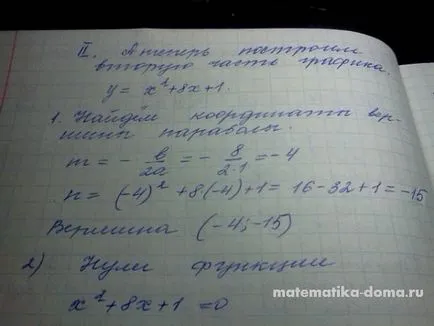 II. А теперь построим
вторую часть графика.
y = x² + 8x + 1.
1. Найдём координаты вер-
шины параболы.
m = - b/2a = - 8/2·1 = -4
n = (-4)² + 8(-4) + 1 = 16 - 32 + 1 = -15
Вершина (-4; -15)
2) Нули функции
x² + 8x + 1 = 0
matematika-doma.ru